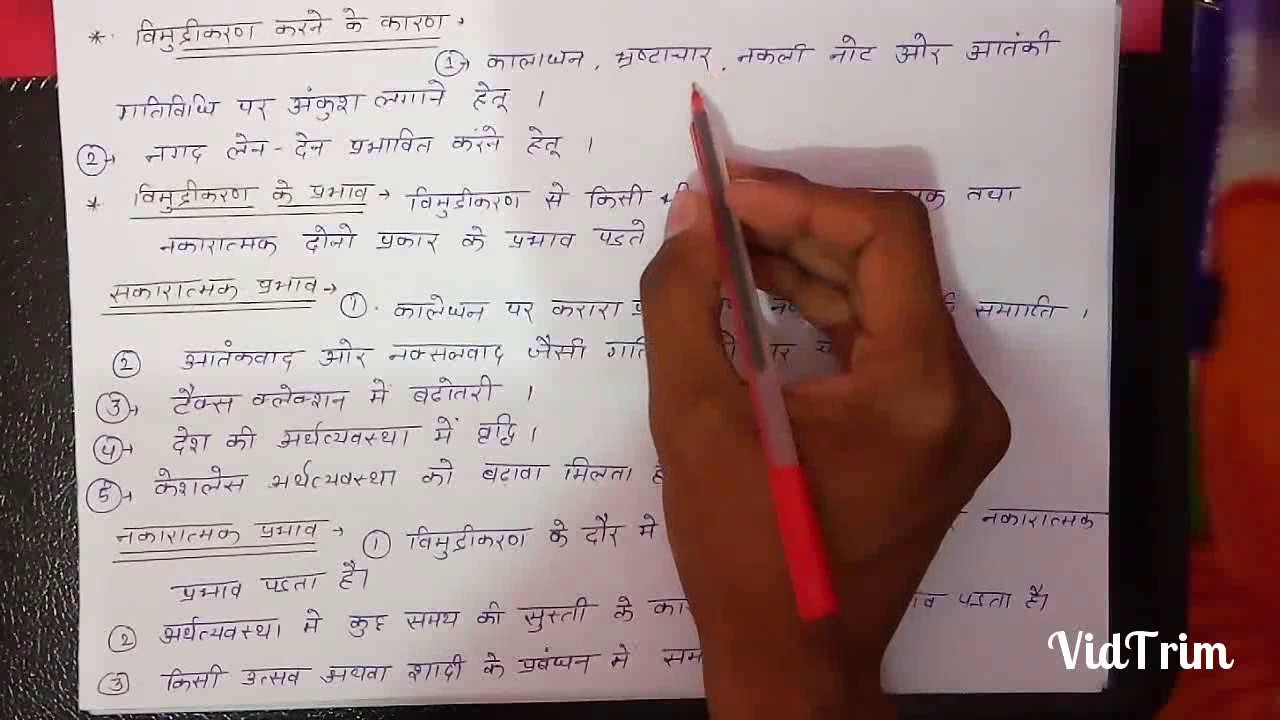 * विमुद्रीकरण करने के कारण →
① → कालाधन, भ्रष्टाचार, नकली नोट और आतंकी
गतिविधि पर अंकुश लगाने हेतू ।
② → नगद लेन - देन प्रभावित करने हेतू ।
* विमुद्रीकरण के प्रभाव → विमुद्रीकरण से किसी तथा
नकारात्मक दोनो प्रकार के प्रभाव पडते
सकारात्मक प्रभाव →
① . कालेधन पर करारा समाप्ति ।
② आतंकवाद और नक्सलवाद जैसी
③ → टैक्स क्लेक्शन में बढोतरी ।
④ → देश की अर्थव्यवस्था में वृद्धि ।
⑤ → केशलेस अर्थव्यवस्था को बढ़ावा मिलता
नकारात्मक प्रभाव → ① विमुद्रीकरण के दौर मे नकारात्मक
प्रभाव पडता है।
② अर्थव्यवस्था मे कुछ समय की सुस्ती के पडता है।
③ किसी उत्सव अथवा शादी के प्रबंधन मे
VidTrim